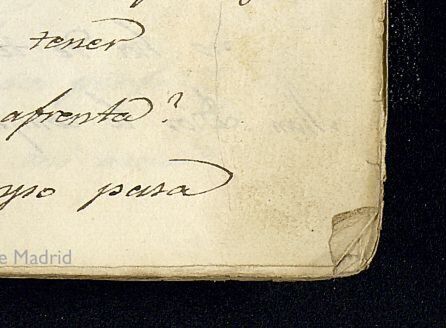 tener
afrenta?
ypo pasa
e Madrid